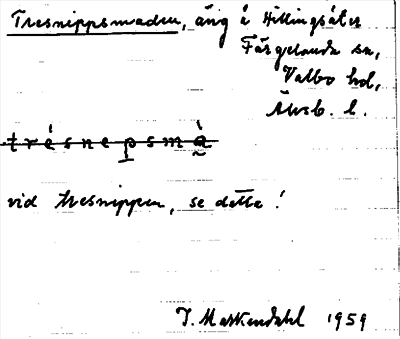 Tresnippsmaden, äng å Hillingsäter
Färgelanda sn,
Valbo hd,
Älvsb. l.
trésnepsmà̰
vid tresnippen, se detta!
J. Markendahl 1959